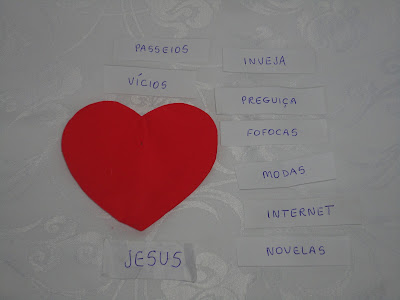 PASSEIOS
INVEJA
VÍCIOS
PREGUIÇA
FOFOCAS
MODAS
INTERNET
JESUS
NOVELAS